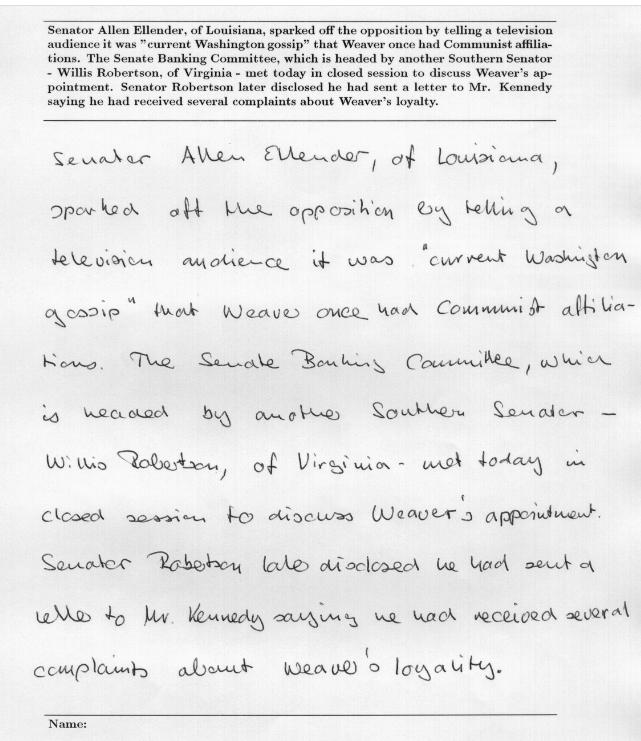 Senator Allen Ellender, of Louisiana, sparked off the opposition by telling a television
audience it was "current Washington gossip" that Weaver once had Communist affilia-
tions. The Senate Banking Committee, which is headed by another Southern Senator
- Willis Robertson, of Virginia - met today in closed session to discuss Weaver's ap-
pointment. Senator Robertson later disclosed he had sent a letter to Mr. Kennedy
saying he had received several complaints about Weaver's loyalty.
Senator Allen Ellender, of Louisiana,
sparked off the opposition by telling a
television audience it was "current Washington
gossip" that Weaver once had Communist affilia-
tions. The Senate Banking Committee, which
is headed by another Southern Senator -
Willis Robertson, of Virginia - met today in
closed session to discuss Weaver's appointment.
Senator Robertson later disclosed he had sent a
letter to Mr. Kennedy saying he had received several
complaints about Weaver's loyality.
Name: